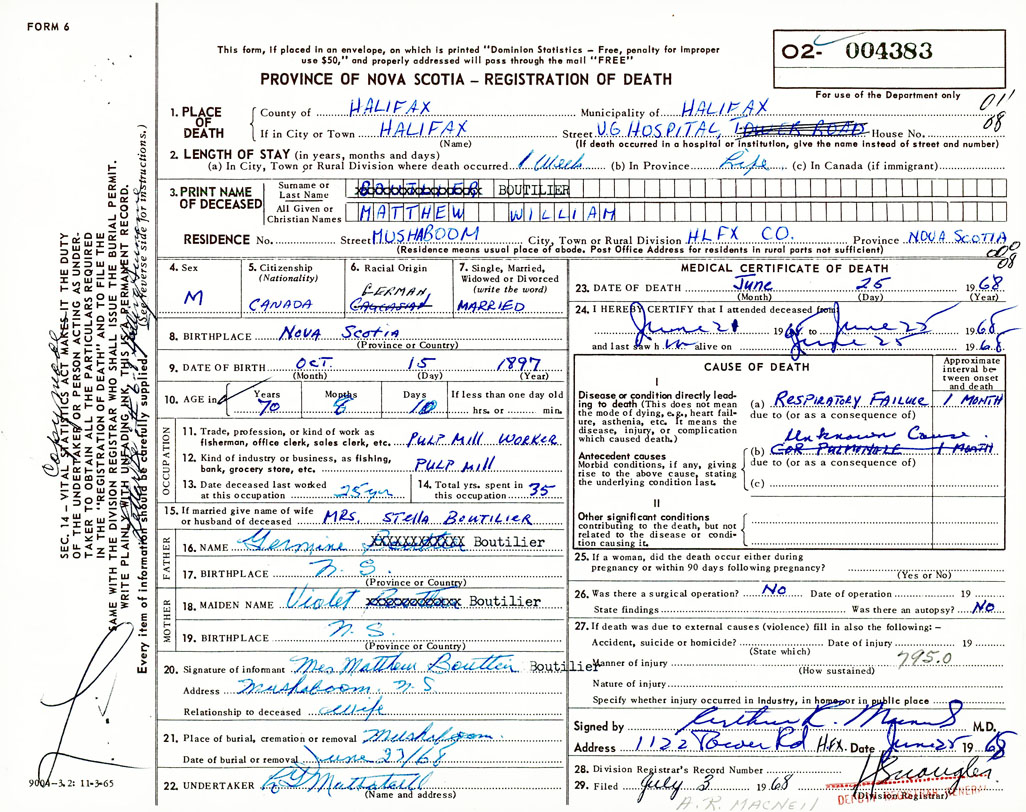 FORM 6
This form, if placed in an envelope, on which is printed "Dominion Statistics – Free, penalty for improper
use $50," and properly addressed will pass through the mail "FREE"
PROVINCE OF NOVA SCOTIA – REGISTRATION OF DEATH
02- 004383
For use of the Department only
011
08
1. PLACE OF DEATH
County of HALIFAX Municipality of HALIFAX
If in City or Town HALIFAX Street V.G HOSPITAL, TOWER ROAD House No.
(Name) (If death occurred in a hospital or institution, give the name instead of street and number)
2. LENGTH OF STAY (in years, months and days)
(a) In City, Town or Rural Division where death occurred 1 Week (b) In Province Life (c) In Canada (if immigrant)
3. PRINT NAME OF DECEASED
Surname or Last Name BOUTILIER
All Given or Christian Names MATTHEW WILLIAM
RESIDENCE No. Street MUSHABOOM City, Town or Rural Division HLFX CO. Province NOVA SCOTIA
(Residence means usual place of abode. Post Office Address for residents in rural parts not sufficient)
00
08
4. Sex
M
5. Citizenship
(Nationality)
CANADA
6. Racial Origin
GERMAN
CAUCASIAN
7. Single, Married,
Widowed or Divorced
(write the word)
MARRIED
8. BIRTHPLACE NOVA SCOTIA
(Province or Country)
9. DATE OF BIRTH OCT. 15 1897
(Month) (Day) (Year)
10. AGE in
Years Months Days If less than one day old
70 8 10 hrs. or min.
OCCUPATION
11. Trade, profession, or kind of work as
fisherman, office clerk, sales clerk, etc. PULP MILL WORKER
12. Kind of industry or business, as fishing,
bank, grocery store, etc. PULP MILL
13. Date deceased last worked
at this occupation 25 yr
14. Total yrs. spent in
this occupation 35
15. If married give name of wife
or husband of deceased MRS. STELLA BOUTILIER
FATHER
16. NAME Boutilier
17. BIRTHPLACE N. S.
(Province or Country)
MOTHER
18. MAIDEN NAME Violet Boutilier
19. BIRTHPLACE N. S.
(Province or Country)
20. Signature of informant Mrs Matthew Boutilier
Address Mushaboom, N S
Relationship to deceased Wife
21. Place of burial, cremation or removal Mushaboom
Date of burial or removal June 27/68
22. UNDERTAKER
(Name and address)
MEDICAL CERTIFICATE OF DEATH
23. DATE OF DEATH June 25 1968
(Month) (Day) (Year)
24. I HEREBY CERTIFY that I attended deceased from
June 21 1968 to June 25 1968
and last saw h im alive on June 25 1968
CAUSE OF DEATH
Approximate
interval be-
tween onset
and death
I
Disease or condition directly lead-
ing to death (This does not mean
the mode of dying, e.g., heart fail-
ure, asthenia, etc. It means the
disease, injury, or complication
which caused death.)
(a) RESPIRATORY FAILURE 1 MONTH
due to (or as a consequence of)
Unknown Cause.
Antecedent causes
Morbid conditions, if any, giving
rise to the above cause, stating
the underlying condition last.
(b) COR PULMONALE 1 MONTH
due to (or as a consequence of)
(c)
II
Other significant conditions
contributing to the death, but not
related to the disease or condi-
tion causing it.
25. If a woman, did the death occur either during
pregnancy or within 90 days following pregnancy?
(Yes or No)
26. Was there a surgical operation? NO Date of operation 19
State findings Was there an autopsy? NO
27. If death was due to external causes (violence) fill in also the following: –
Accident, suicide or homicide? Date of injury 19
(State which)
Manner of injury 795.0
(How sustained)
Nature of injury
Specify whether injury occurred in Industry, in home, or in public place
Signed by Arthur K. M.D.
Address 1122 Tower Rd Hfx. Date June 25 1968
28. Division Registrar's Record Number
29. Filed July 3 1968
(Division Registrar)
DEPUTY REGISTRAR GENERAL
A. R. MACNEIL
9004-3.2: 11-3-65
SEC. 14 – VITAL STATISTICS ACT MAKES IT THE DUTY
OF THE UNDERTAKER OR PERSON ACTING AS UNDER-
TAKER TO OBTAIN ALL THE PARTICULARS REQUIRED
IN THE "REGISTRATION OF DEATH" AND TO FILE THE
SAME WITH THE DIVISION REGISTRAR WHO SHALL ISSUE THE BURIAL PERMIT.
WRITE PLAINLY WITH UNFADING INK, THIS IS A PERMANENT RECORD.
Every item of information should be carefully supplied. (See reverse side for instructions.)